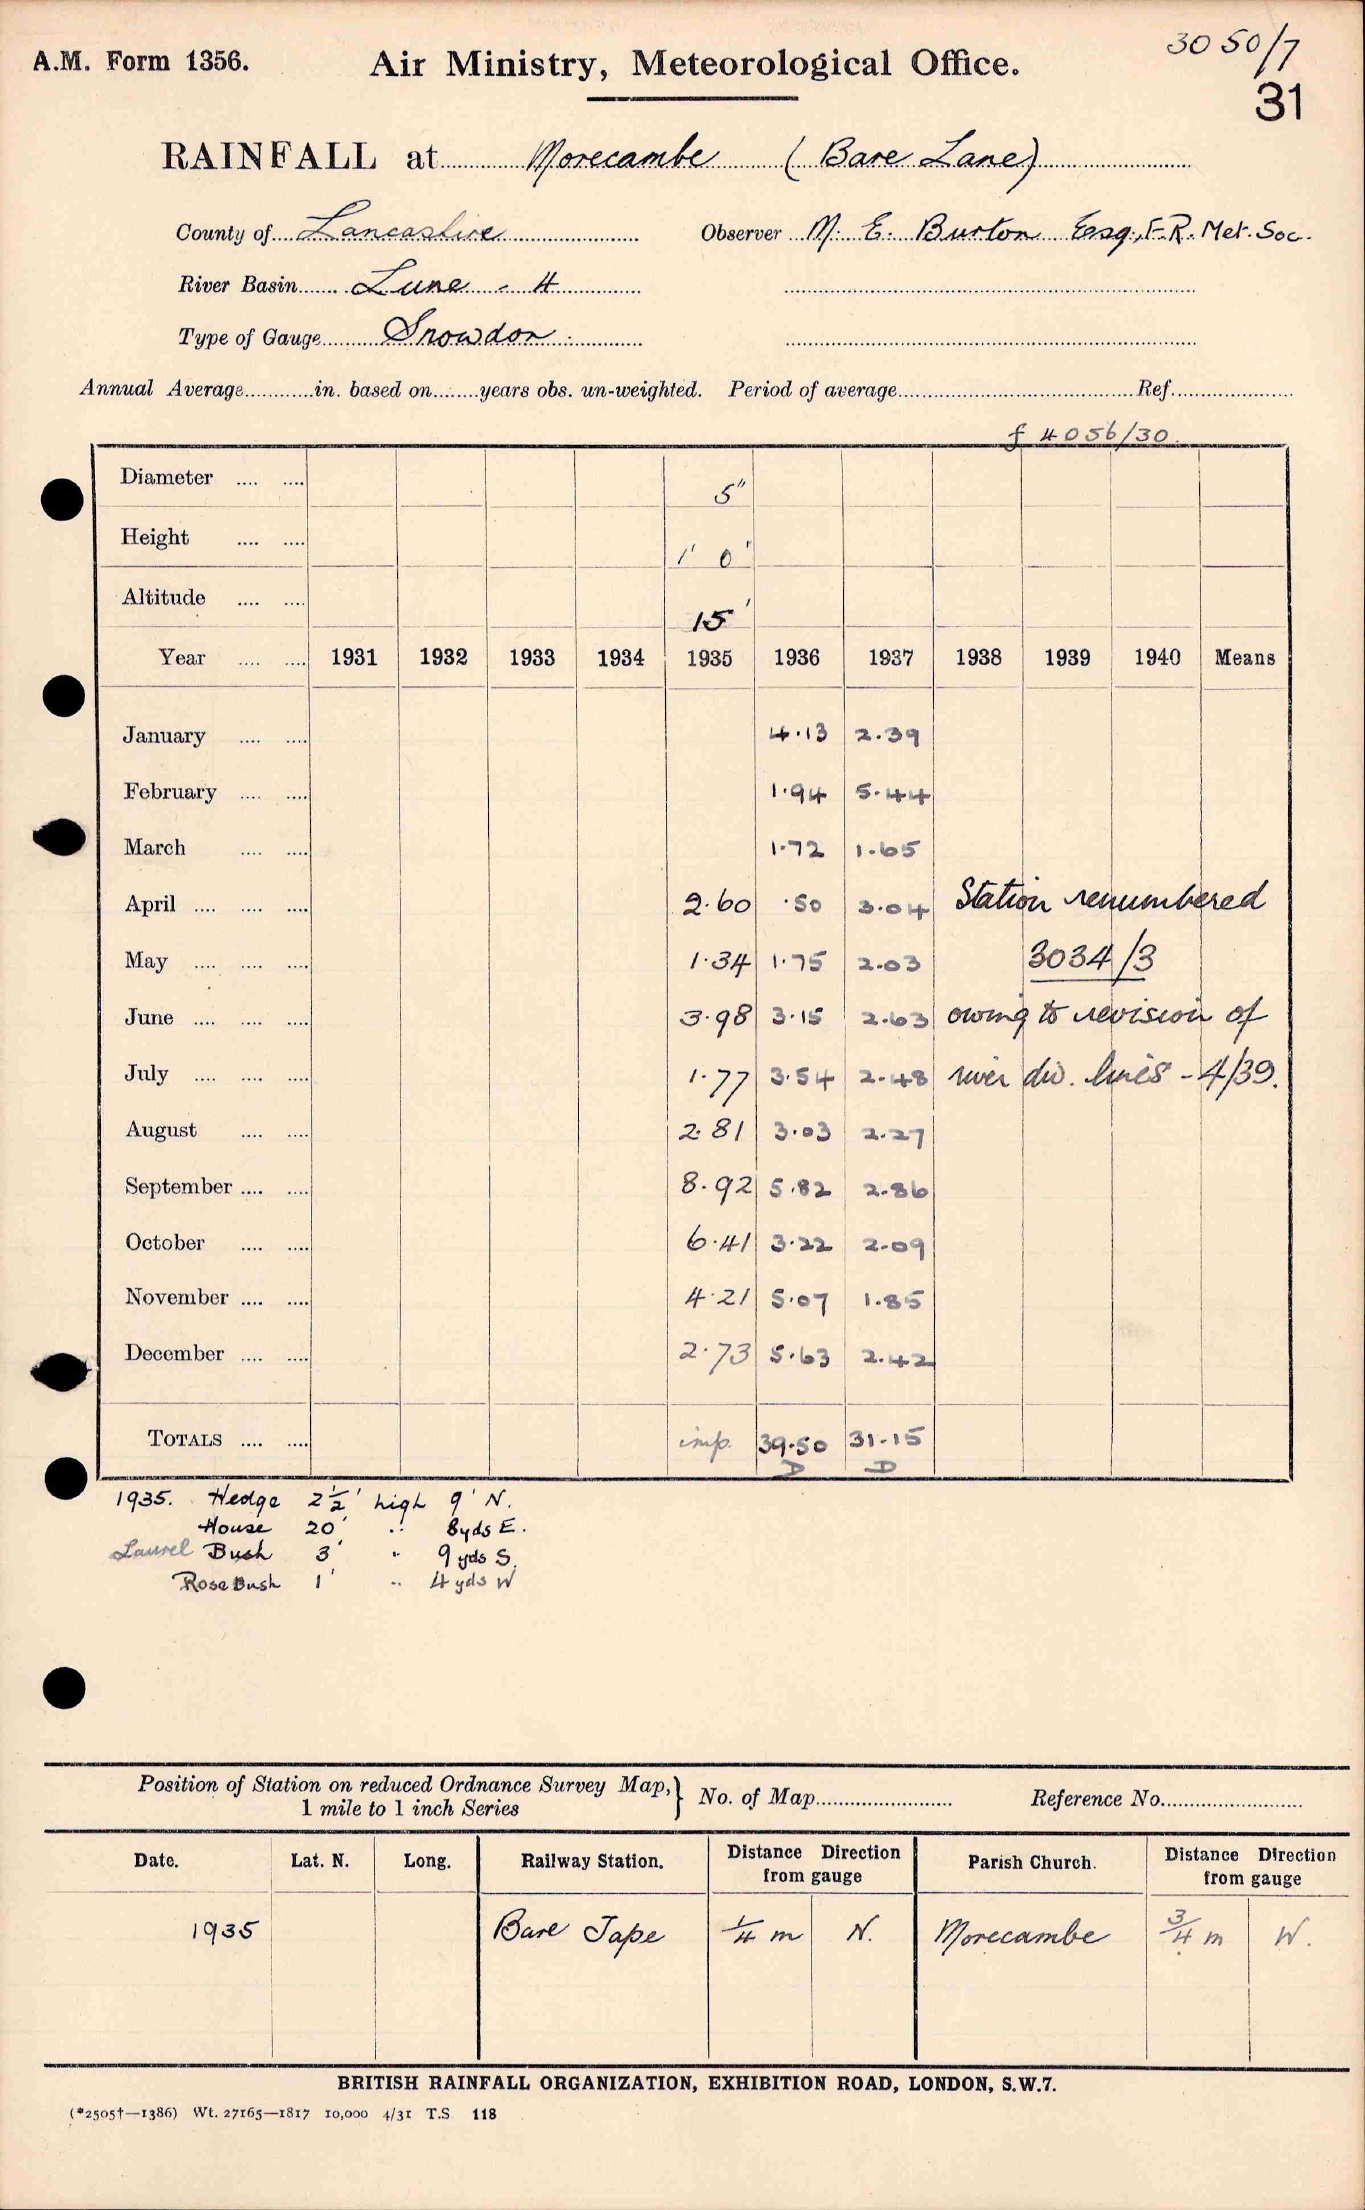 A.M. Form 1356.
Air Ministry, Meteorological Office.
3050/7
31
RAINFALL at Morecambe (Bare Lane)
County of Lancashire Observer M. E. Burton Esq., F.R. Met. Soc.
River Basin Lune - 4
Type of Gauge Snowdon
Annual Average in. based on years obs. un-weighted. Period of average Ref.
f 4056/30
Diameter 5"
Height 1' 0"
Altitude 15'
Year 1931 1932 1933 1934 1935 1936 1937 1938 1939 1940 Means
January 4.13 2.39
February 1.94 5.44
March 1.72 1.65
April 2.60 .50 3.04 Station renumbered
May 1.34 1.75 2.03 3034/3
June 3.98 3.15 2.63 owing to revision of
July 1.77 3.54 2.48 river div. lines - 4/39.
August 2.81 3.03 2.27
September 8.92 5.82 2.86
October 6.41 3.22 2.09
November 4.21 5.07 1.85
December 2.73 5.63 2.42
TOTALS imp. 39.50 31.15
D D
1935. Hedge 2½' high 9' N.
House 20' " 8yds E.
Laurel Bush 3' " 9 yds S.
Rose Bush 1' " 4 yds W
Position of Station on reduced Ordnance Survey Map, } No. of Map Reference No.
1 mile to 1 inch Series
Date. Lat. N. Long. Railway Station. Distance Direction from gauge Parish Church. Distance Direction from gauge
1935 Bare Tape ¼ m N. Morecambe ¾ m W.
BRITISH RAINFALL ORGANIZATION, EXHIBITION ROAD, LONDON, S.W.7.
(*2505†—1386) Wt. 27165—1817 10,000 4/31 T.S 118